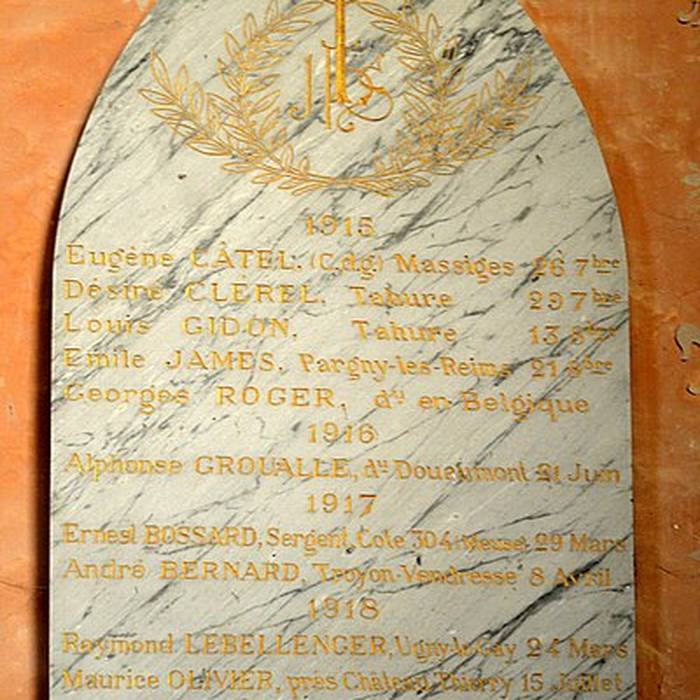 JHS
1915
Eugène CÂTEL. (C.d.g.) Massiges 26 7bre
Désiré CLEREL. Tahure 29 7bre
Louis GIDON. Tahure 13 8bre
Emile JAMES. Pargny-les-Reims 21 8bre
Georges ROGER, du en Belgique
1916
Alphonse GROUALLE, du Douaumont 21 Juin
1917
Ernest BOSSARD, Sergent, Cote 304 Meuse 29 Mars
André BERNARD, Troyon-Vendresse 8 Avril
1918
Raymond LEBELLENGER, 24 Mars
Maurice OLIVIER, près Château Thierry 15 Juillet